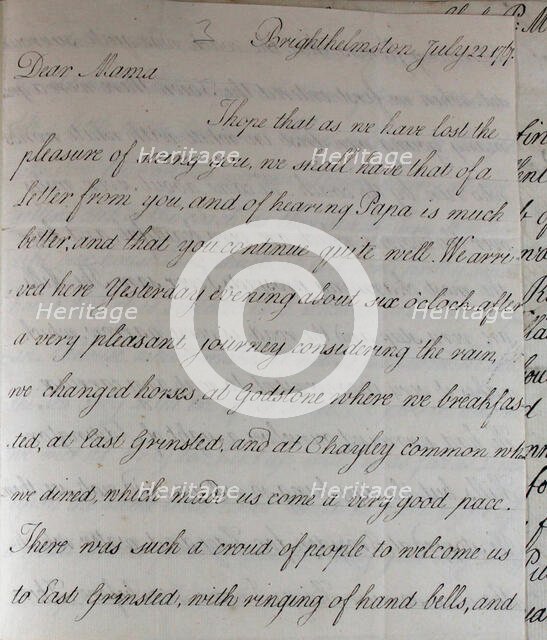 Brighthelmston July 22 177
Dear Mama
I hope that as we have lost the
pleasure of seeing you, we shall have that of a
Letter from you, and of hearing Papa is much
better, and that you continue quite well. We arri
ved here Yesterday evening about six o'clock after
a very pleasant journey considering the rain,
we changed horses, at Godstone where we breakfas
.ted, at East Grinsted, and at Chayley common
we dined, which made us come a very good pace.
There was such a croud of people to welcome us
to East Grinsted, with ringing of hand bells, and
Heritage Heritage
Heritage Heritage
Heritage Heritage
Heritage Heritage